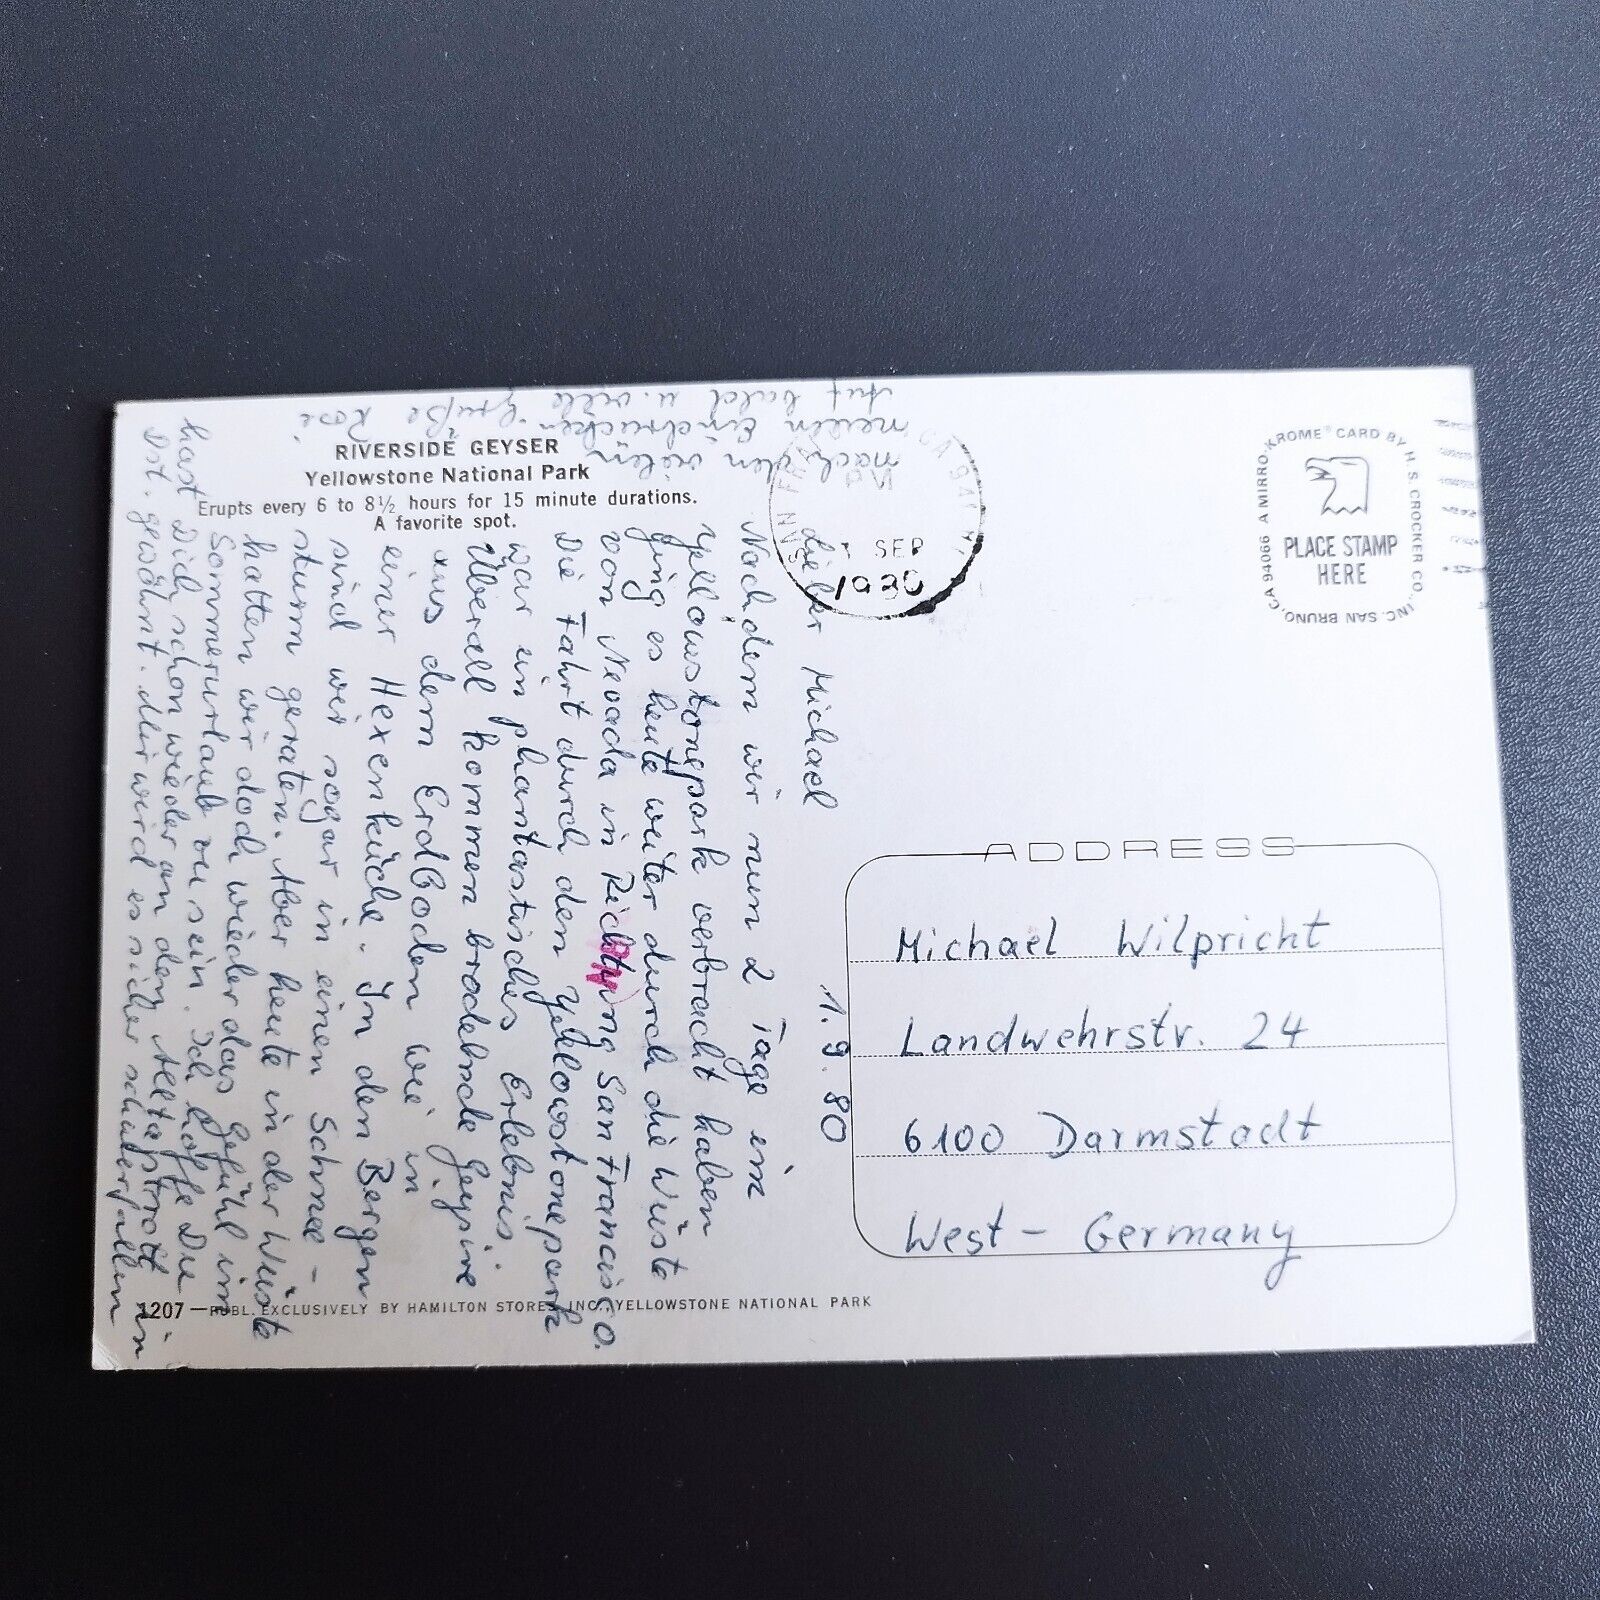 RIVERSIDE GEYSER
Yellowstone National Park
Erupts every 6 to 8½ hours for 15 minute durations.
A favorite spot.
1.9.80
Lieber Michael
Nachdem wir nun 2 Tage im
Yellowstonepark verbracht haben
ging es heute weiter durch die Wüste
von Nevada in Richtung San Francisco.
Die Fahrt durch den Yellowstonepark
war ein phantastisches Erlebnis.
Überall kommen brodelnde Geysire
aus dem Erdboden wie in
einer Hexenküche. In den Bergen
sind wir sogar in einen Schnee-
sturm geraten. Aber heute in der Wüste
hatten wir doch wieder das Gefühl im
Sommerurlaub zu sein. Ich hoffe Du
hast Dich schon wieder an den Alltagstrott in
Dst. gewöhnt. Mir wird es sicher schwerfallen
nach den vielen
neuen Eindrücken.
Auf bald u. viele Grüße
SAN FRANCISCO, CA 941
PM
1 SEP
1980
KROME® CARD BY H.S. CROCKER CO., INC. SAN BRUNO, CA 94066 A MIRRO-
PLACE STAMP
HERE
ADDRESS
Michael Wilpricht
Landwehrstr. 24
6100 Darmstadt
West-Germany
1207—PUBL. EXCLUSIVELY BY HAMILTON STORES, INC., YELLOWSTONE NATIONAL PARK